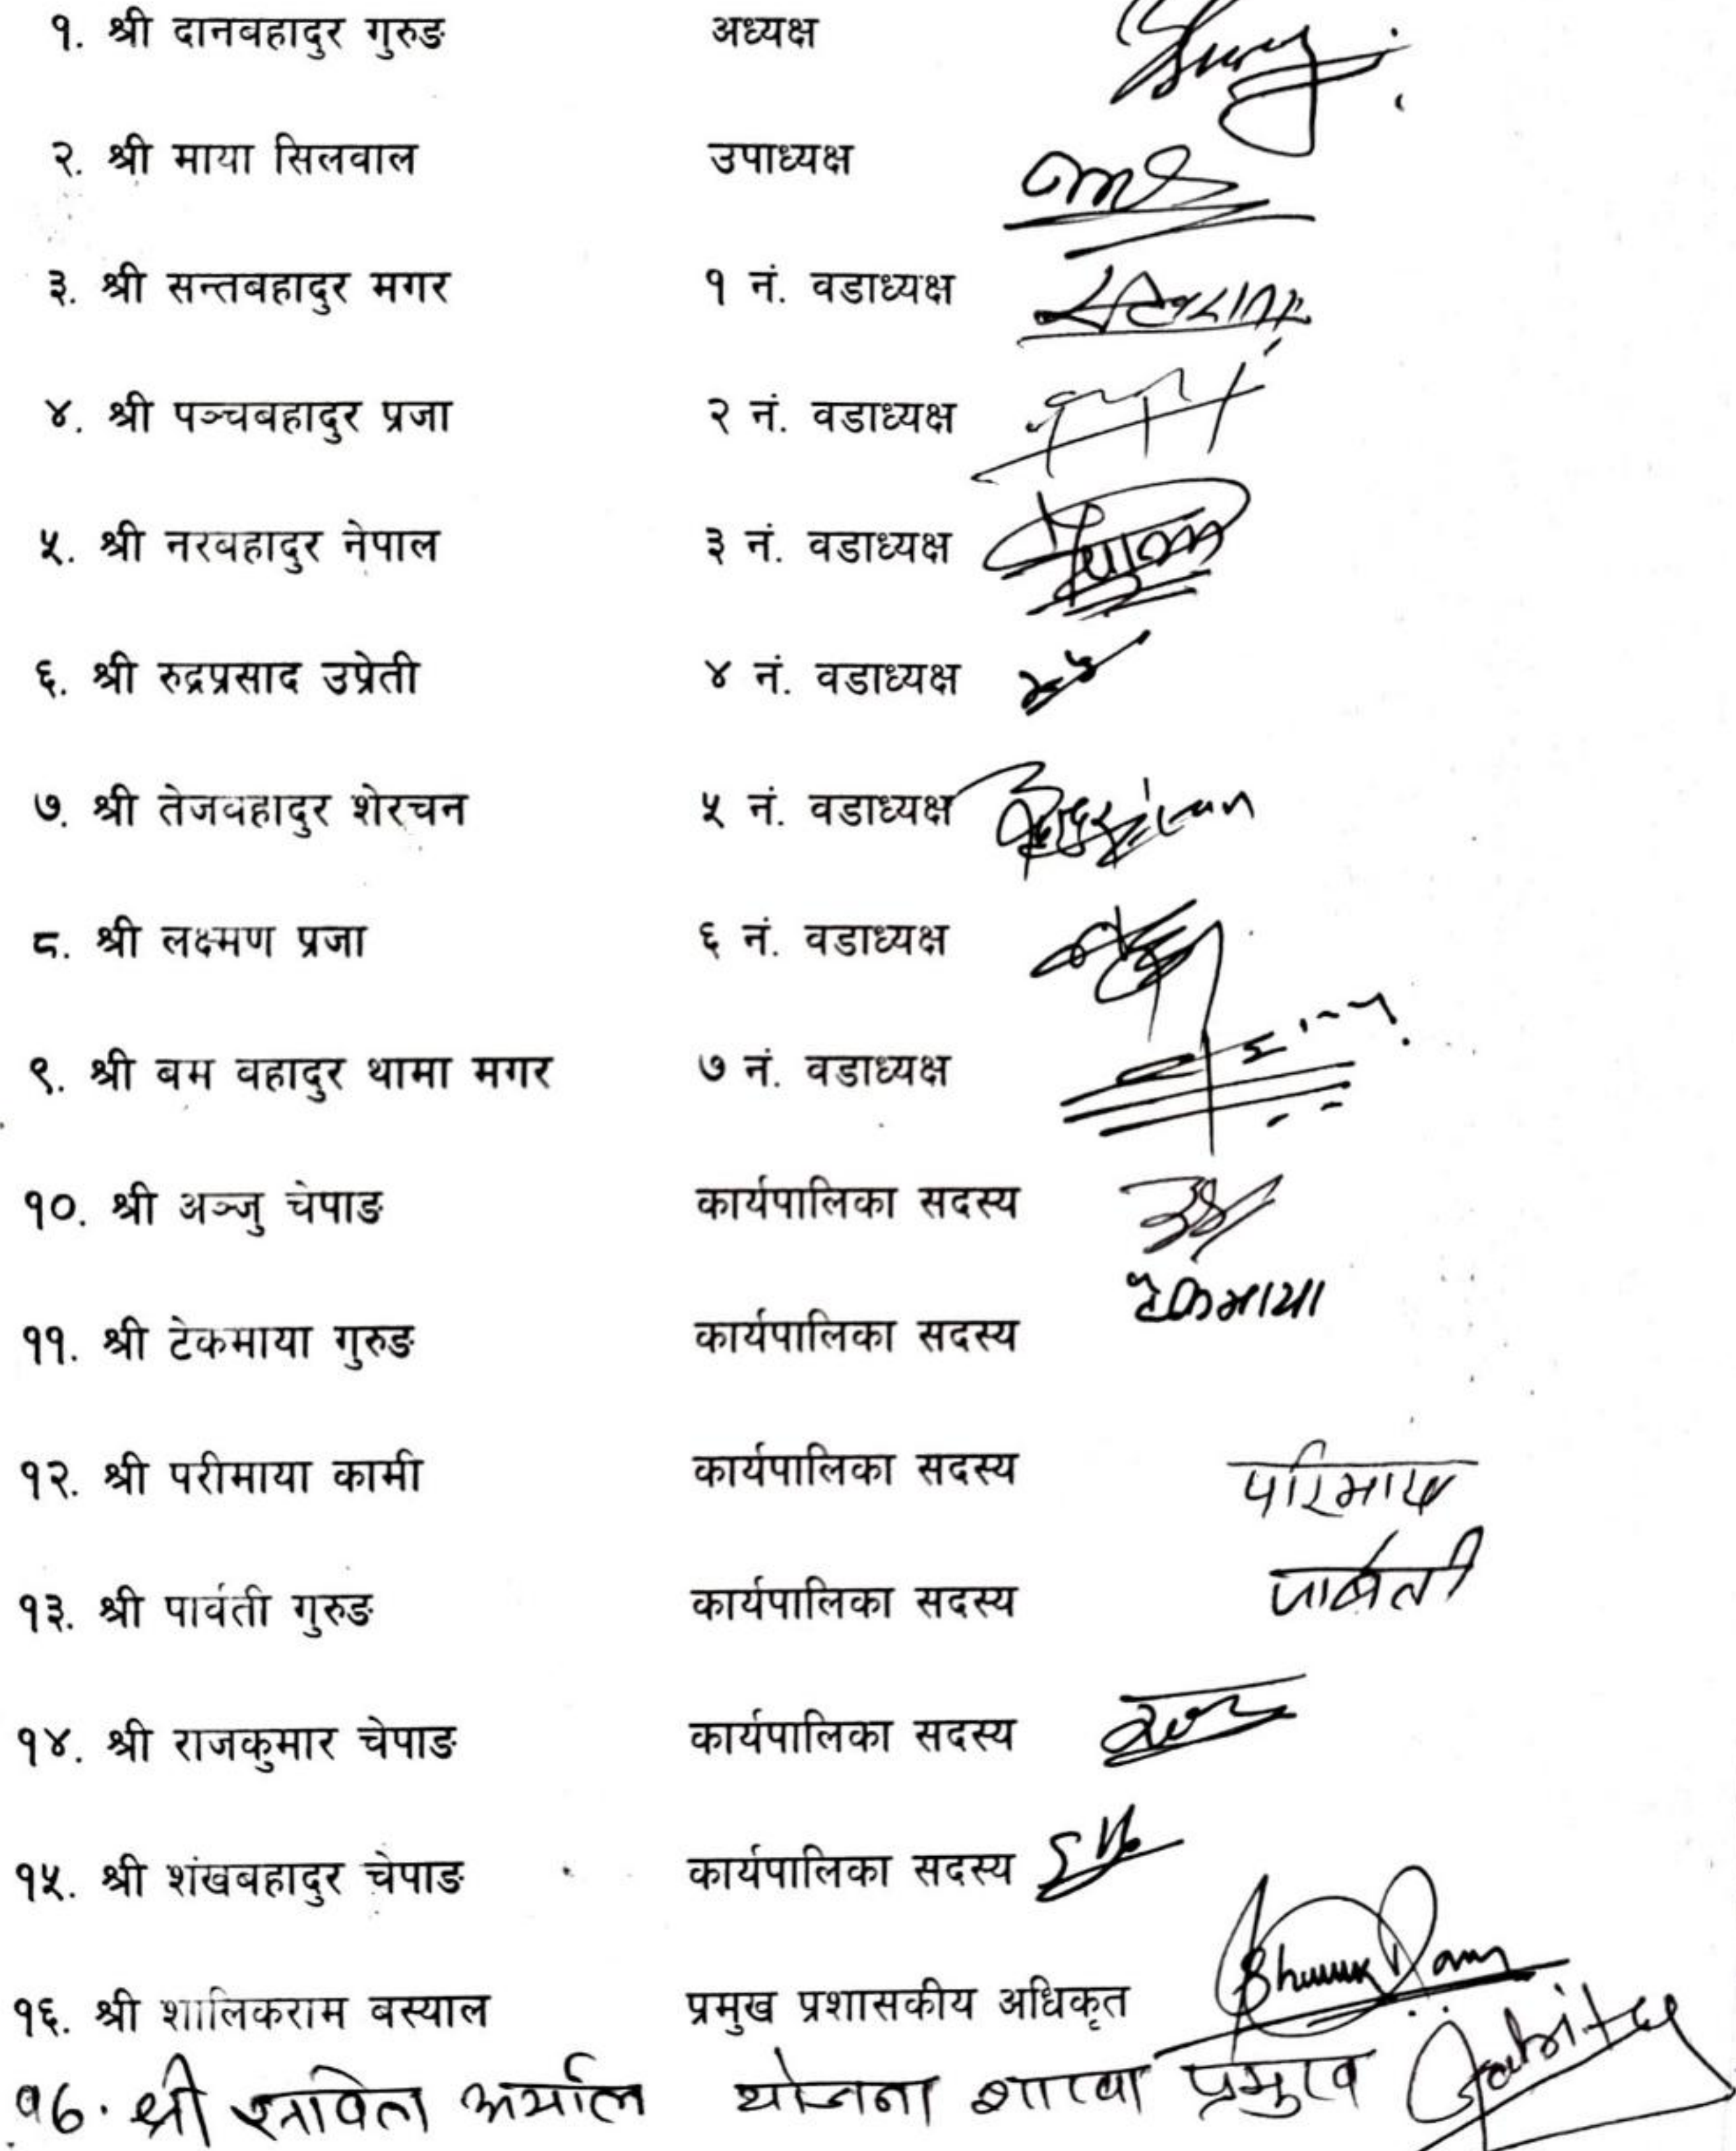 १. श्री दानबहादुर गुरुङ अध्यक्ष
२. श्री माया सिलवाल उपाध्यक्ष
३. श्री सन्तबहादुर मगर १ नं. वडाध्यक्ष
४. श्री पञ्चबहादुर प्रजा २ नं. वडाध्यक्ष
५. श्री नरबहादुर नेपाल ३ नं. वडाध्यक्ष
६. श्री रुद्रप्रसाद उप्रेती ४ नं. वडाध्यक्ष
७. श्री तेजवहादुर शेरचन ५ नं. वडाध्यक्ष
८. श्री लक्ष्मण प्रजा ६ नं. वडाध्यक्ष
९. श्री बम वहादुर थामा मगर ७ नं. वडाध्यक्ष
१०. श्री अञ्जु चेपाङ कार्यपालिका सदस्य
टेकमाया
११. श्री टेकमाया गुरुङ कार्यपालिका सदस्य
१२. श्री परीमाया कामी कार्यपालिका सदस्य परिमाया
१३. श्री पार्वती गुरुङ कार्यपालिका सदस्य पार्बती
१४. श्री राजकुमार चेपाङ कार्यपालिका सदस्य
१५. श्री शंखबहादुर चेपाङ कार्यपालिका सदस्य
१६. श्री शालिकराम बस्याल प्रमुख प्रशासकीय अधिकृत
१७. श्री अर्याल योजना शाखा प्रमुख